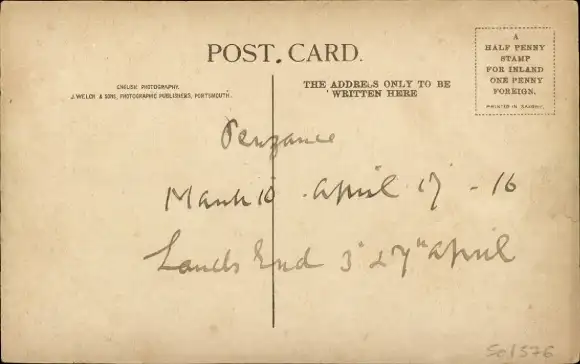 POST. CARD.
ENGLISH PHOTOGRAPHY.
J. WELCH & SONS, PHOTOGRAPHIC PUBLISHERS, PORTSMOUTH.
THE ADDRESS ONLY TO BE
WRITTEN HERE
A
HALF PENNY
STAMP
FOR INLAND
ONE PENNY
FOREIGN.
PRINTED IN SAXONY.
Penzance
March 10 - April 17 - 16
Lands End 3 & 7th April
501576